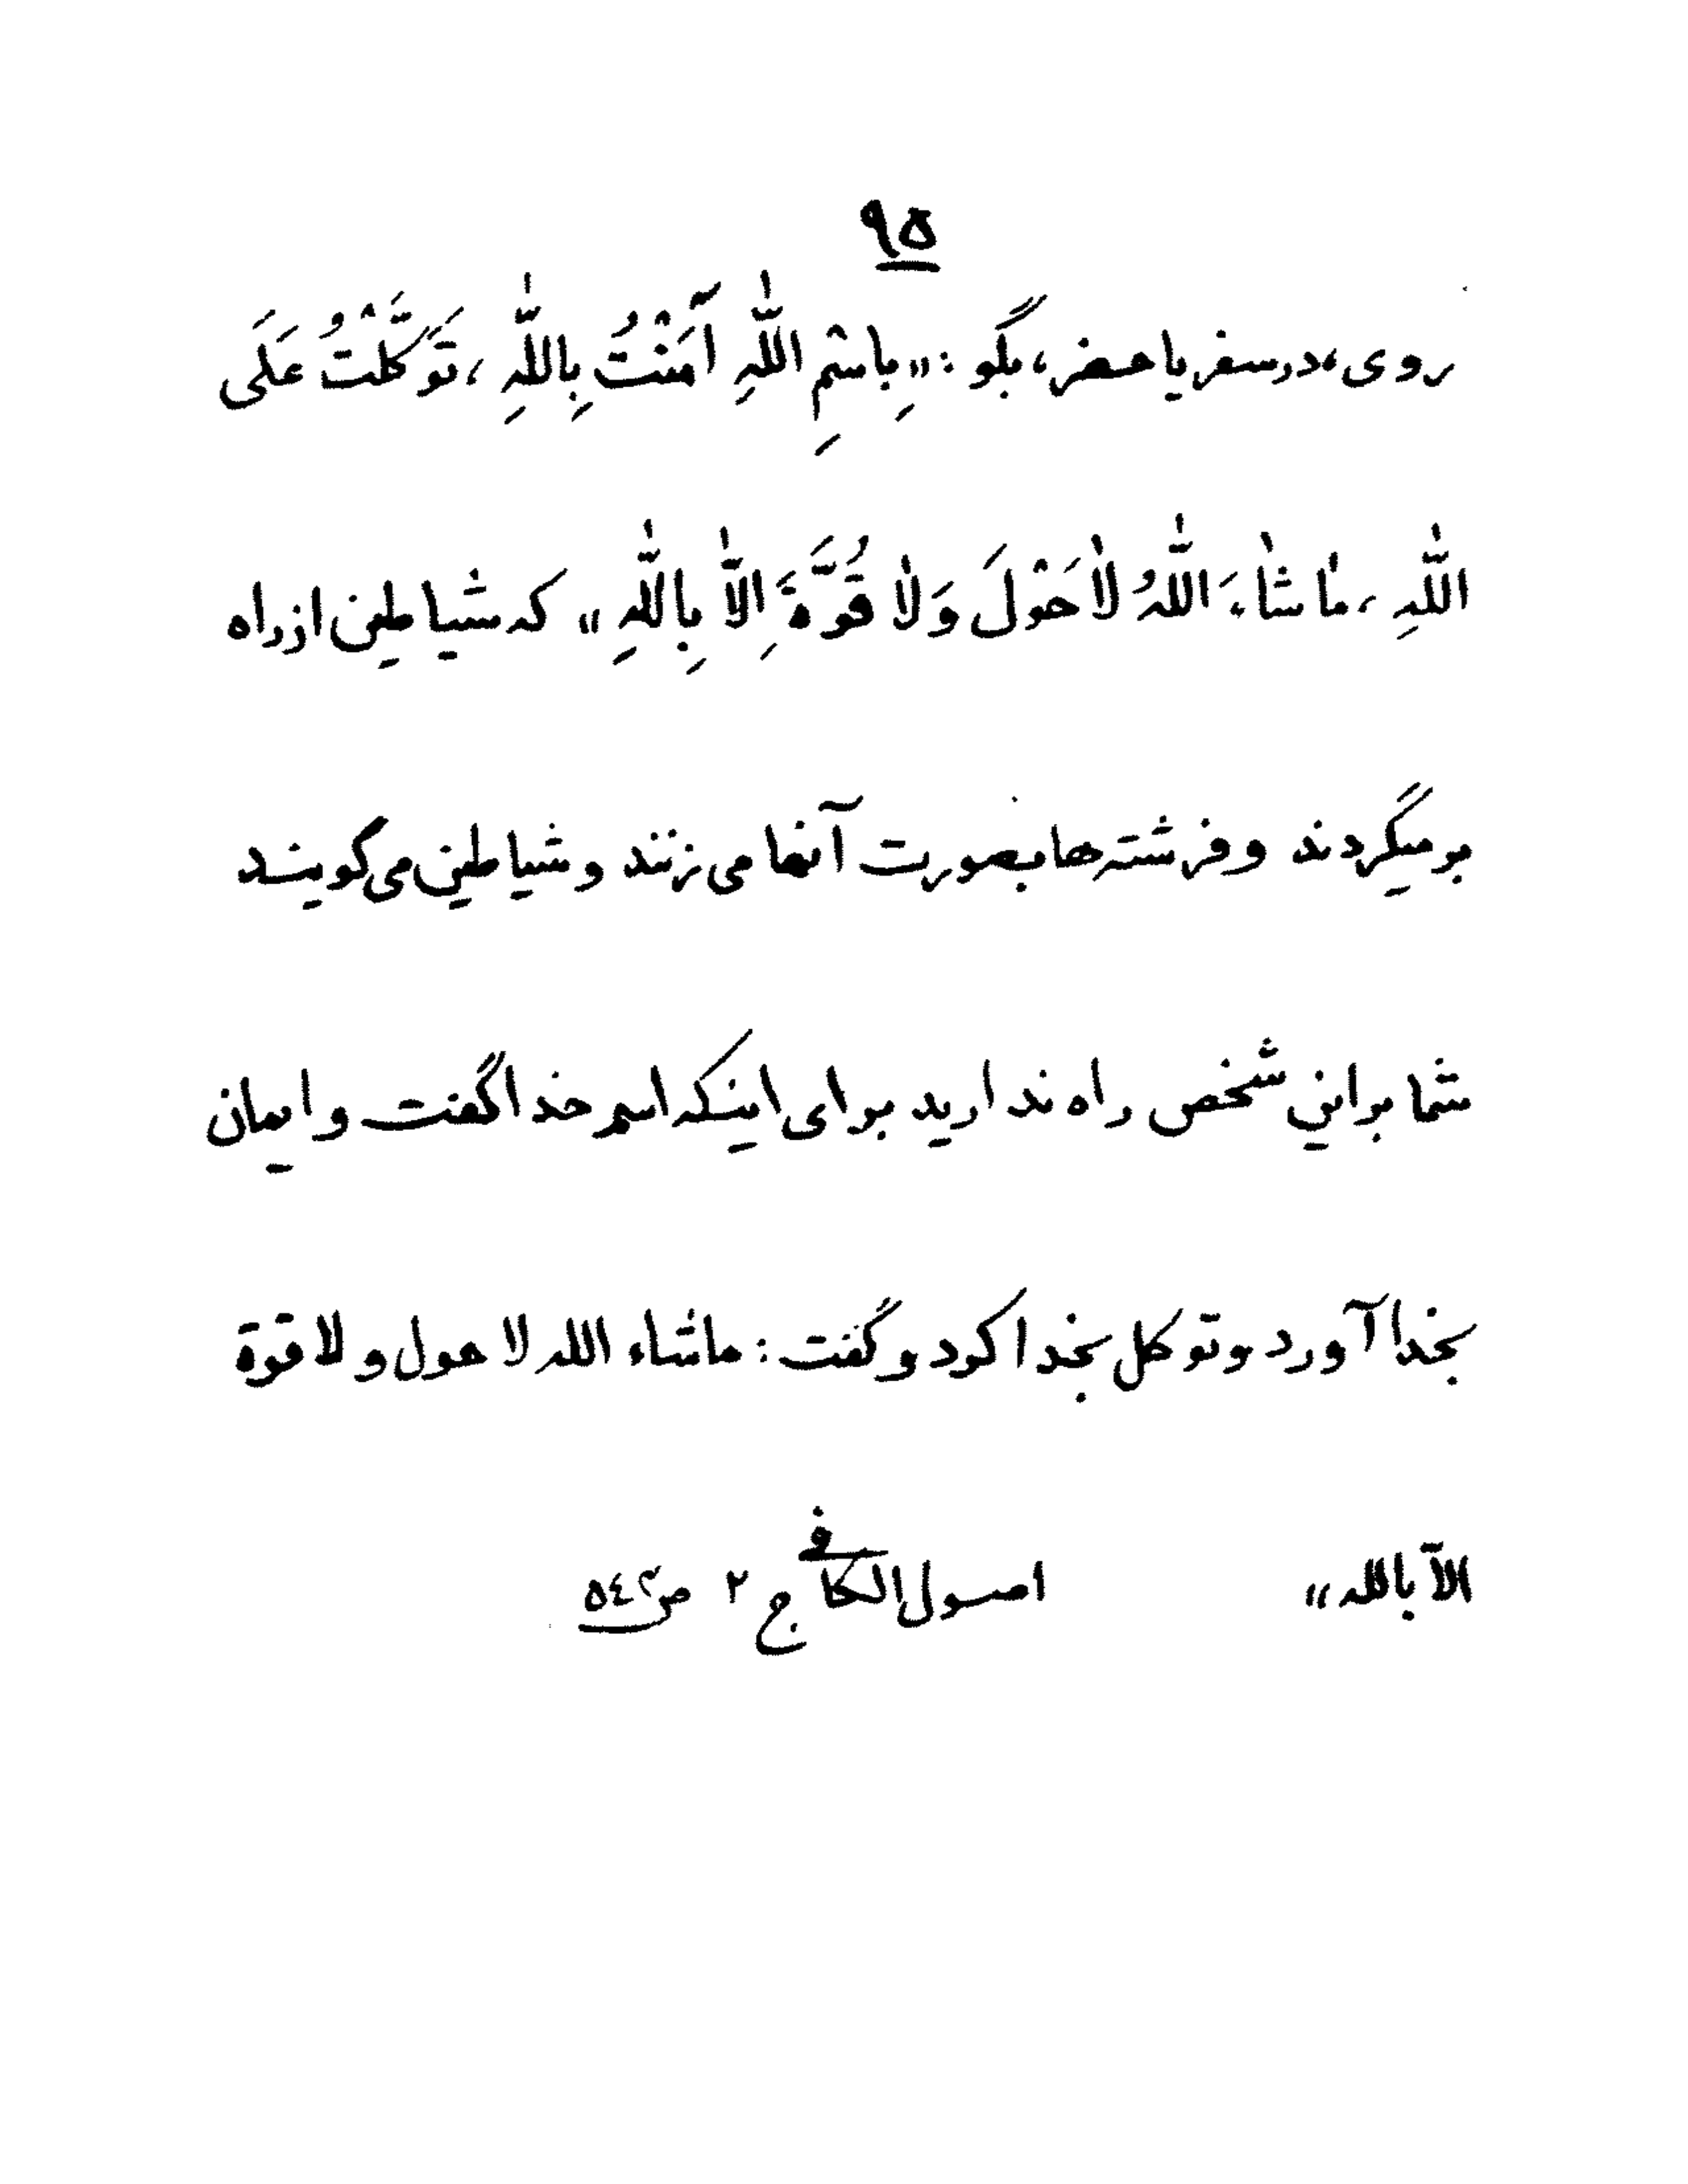 ۹۵
روی، در سفر یا حضر، بگو : «بِاسْمِ اللّٰهِ آمَنْتُ بِاللّٰهِ ، تَوَكَّلْتُ عَلَى
اللّٰهِ ، مٰا شٰاءَ اللّٰهُ لٰا حَوْلَ وَلٰا قُوَّةَ اِلاّٰ بِاللّٰهِ» که شیاطین از راه
بر میگردند و فرشته ها بصورت آنها می زنند و شیاطین می گویند
شما بر این شخص راه ندارید برای اینکه اسم خدا گفت و ایمان
بخدا آورد و توکل بخدا کرد و گفت : ماشاء الله لا حول و لا قوة
الآ بالله» اصول الکافی ج ۲ ص ٥٤٢